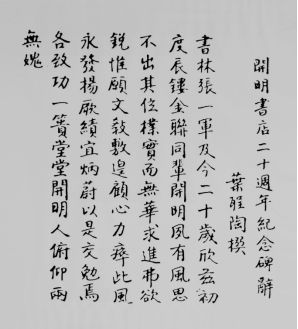 開明書店二十週年紀念碑辭
葉聖陶撰
書林張一軍及今二十歲欣兹初
度辰鏤金聯同輩開明夙有風思
不出其位樸實而無華求進弗欲
銳惟願文教敷遑顧心力瘁此風
永發揚厥績宜炳蔚以是交勉焉
各致功一簣堂堂開明人俯仰兩
無媿